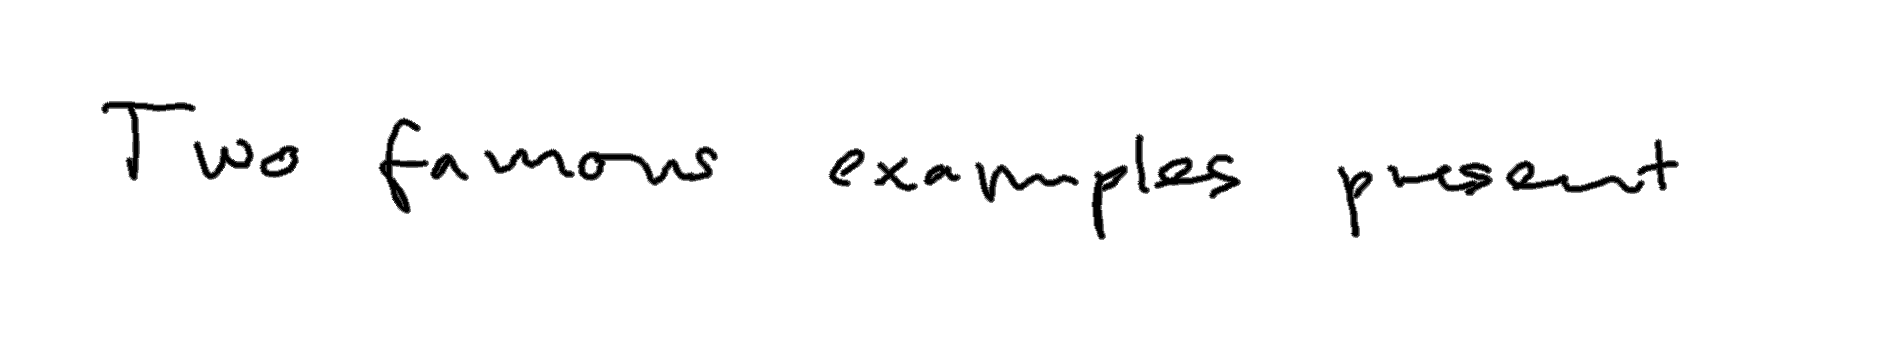 Two famous examples present